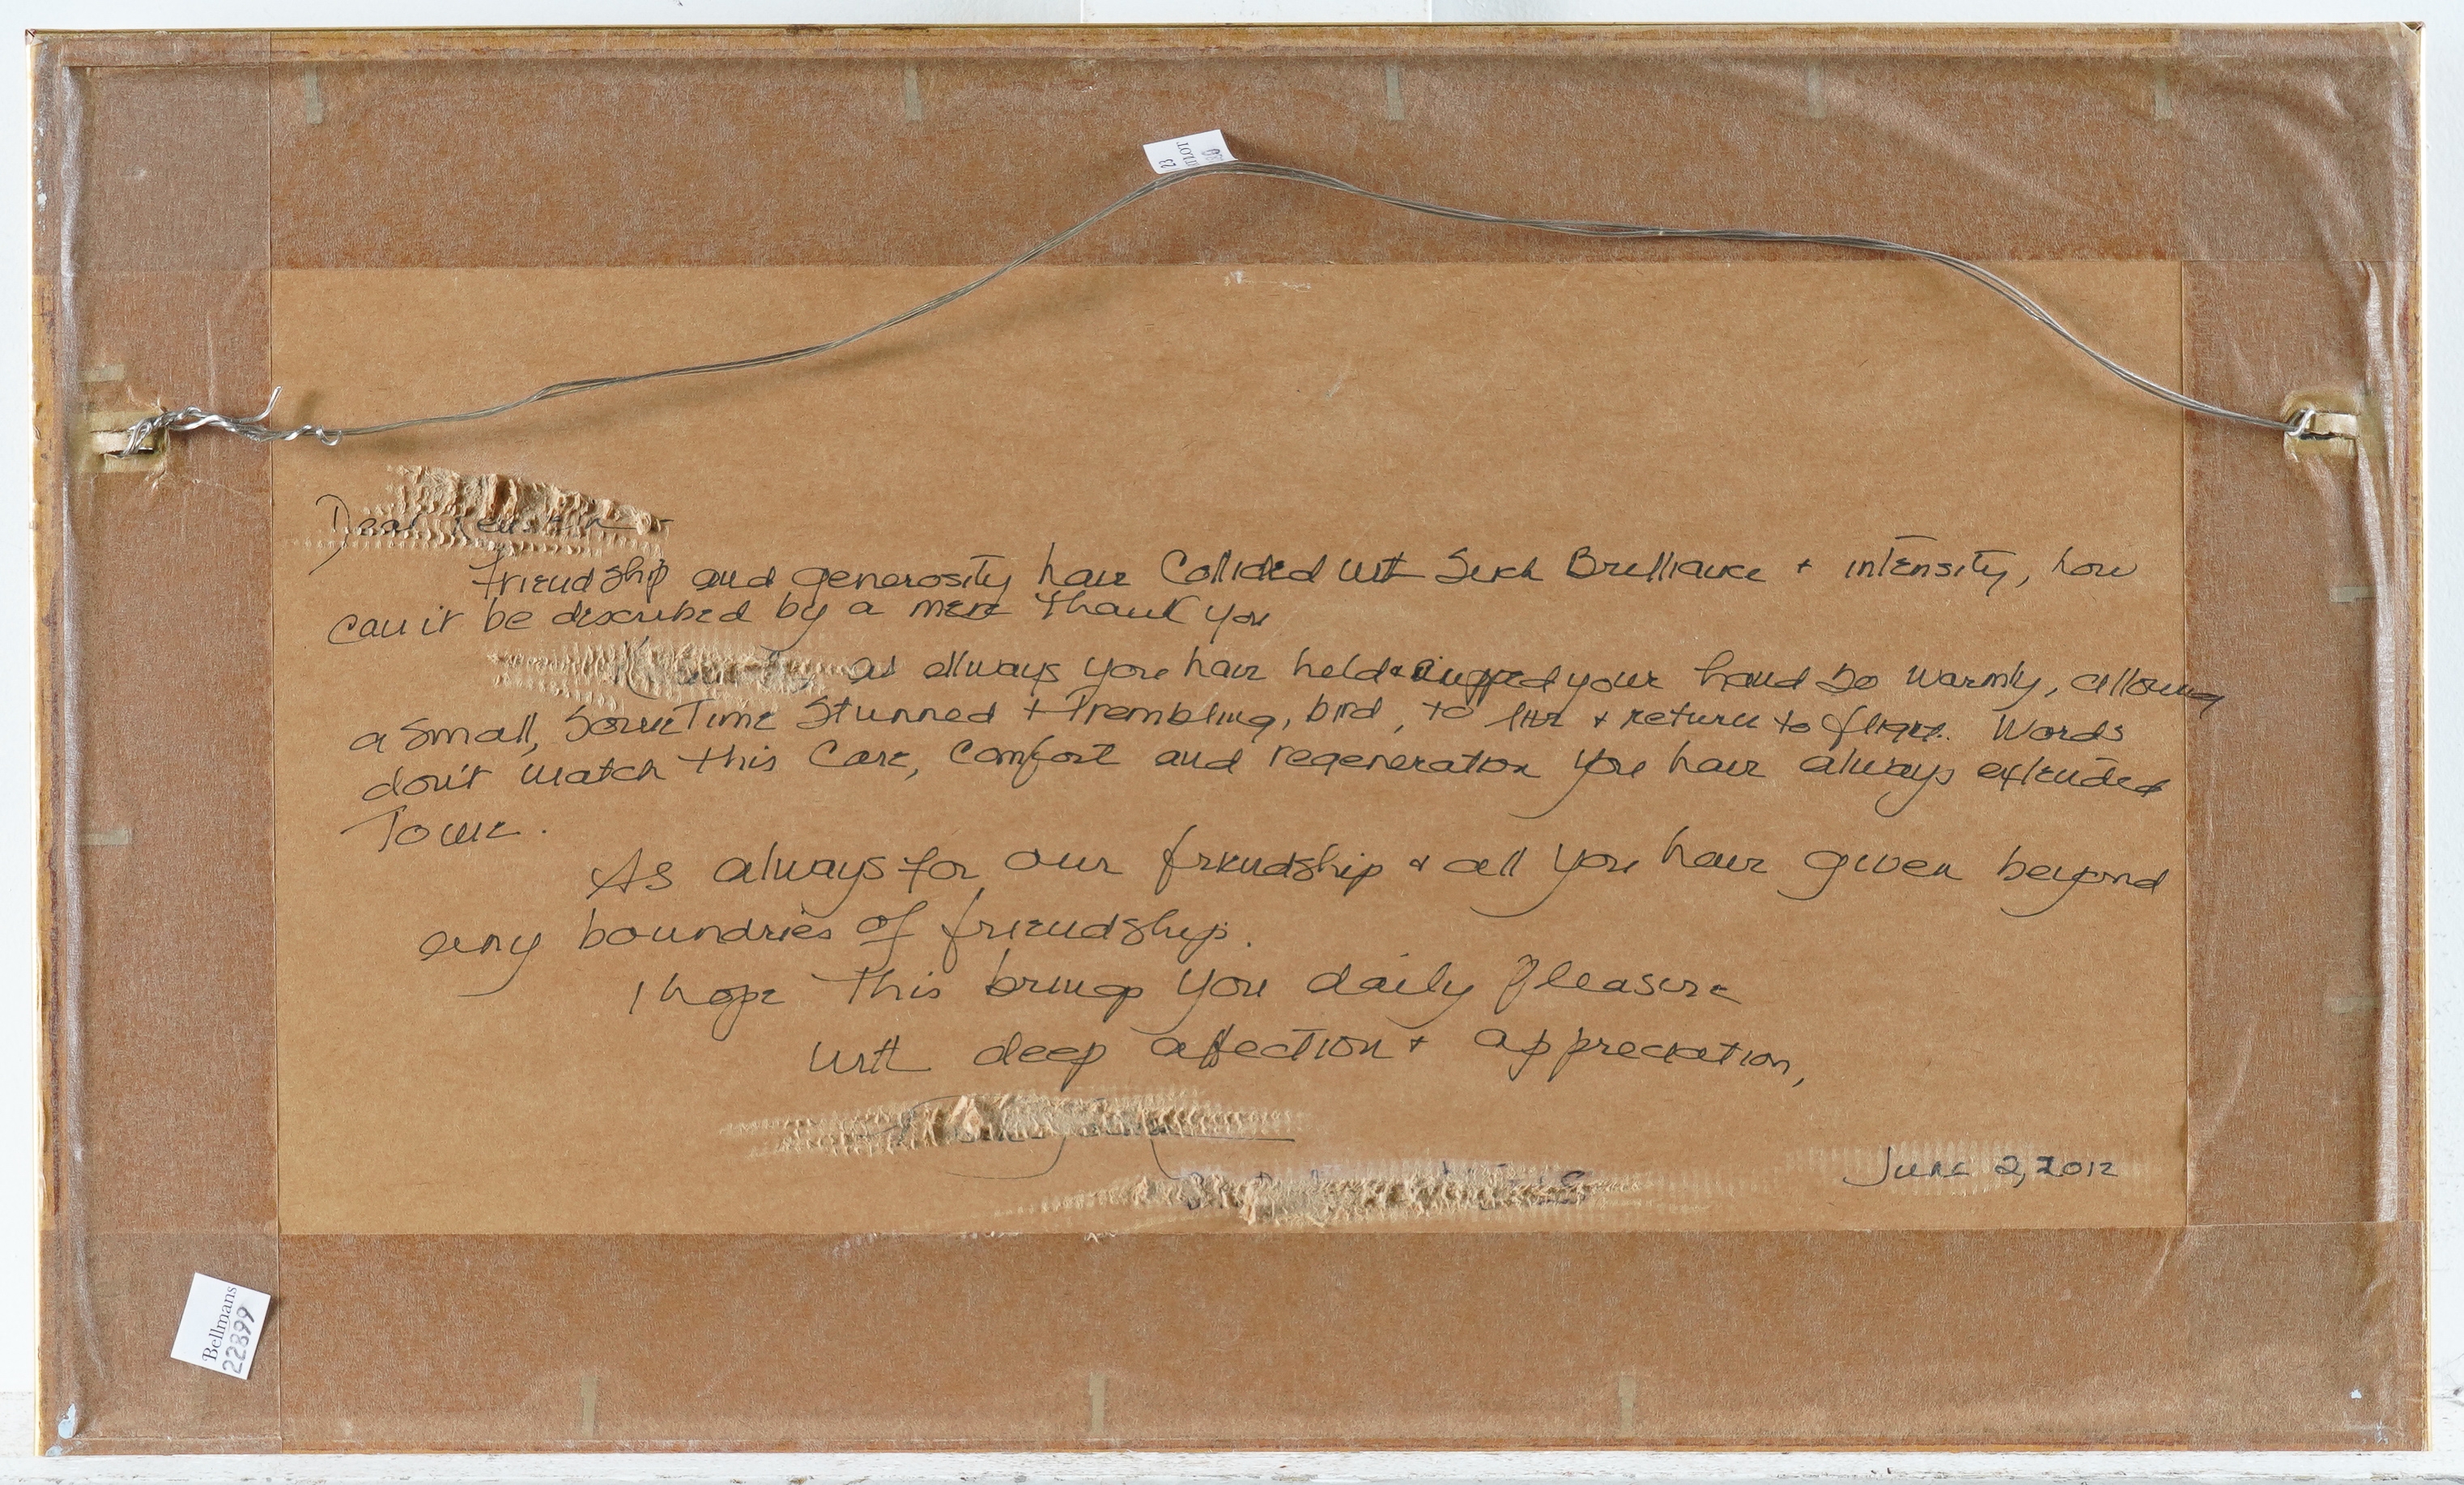 23
LOT
Dear
Friendship and generosity have Collided with Such Brilliance + intensity, how
can it be described by a mere thank you
as always you have held + cupped your hand so warmly, allowing
a small, sometime stunned + trembling, bird, to live + return to flight. Words
don't match this care, comfort and regeneration you have always extended
To me.
As always for our friendship + all you have given beyond
any boundries of friendship.
I hope this brings you daily pleasure
with deep affection + appreciation,
June 2, 2012
Bellmans
22899